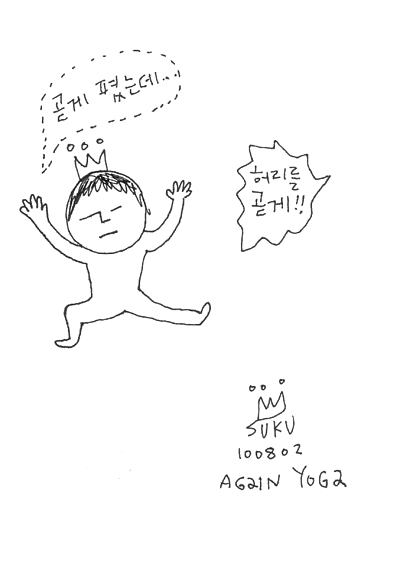 곧게 폈는데...
허리를
곧게!!
SUKU
100802
AGAIN YOGA